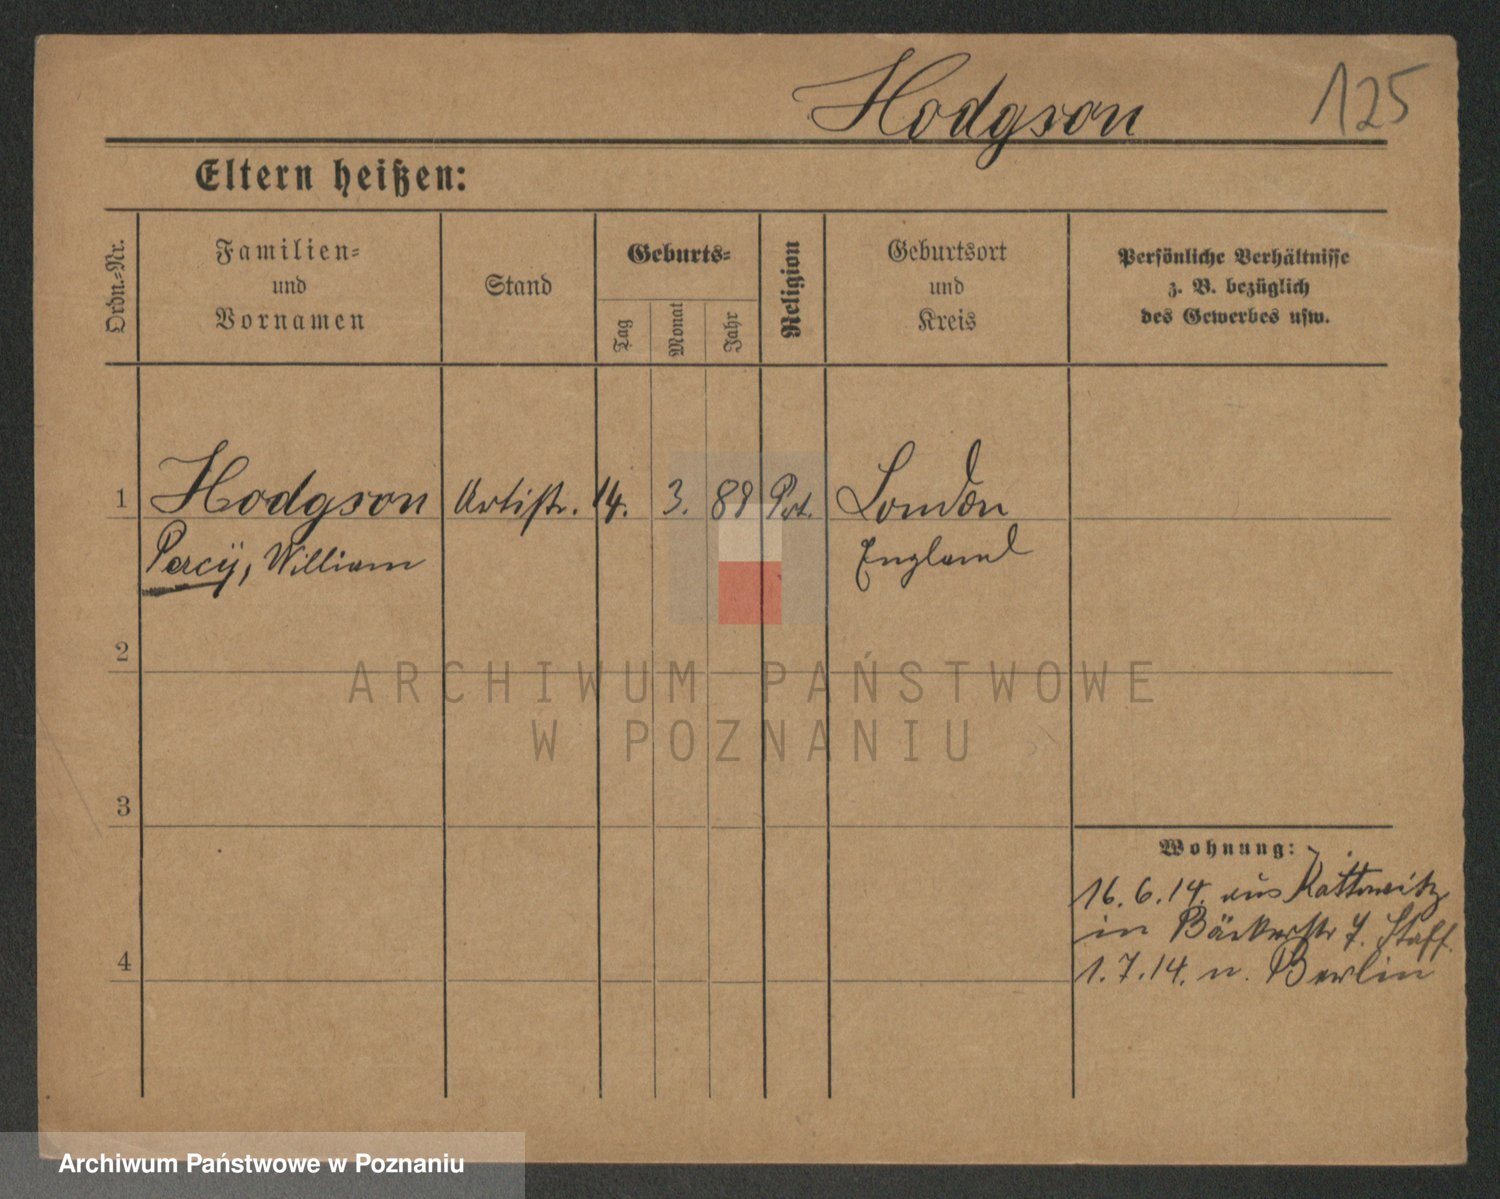 Hodgson
125
Eltern heißen:
Ordn.-Nr.
Familien-
und
Vornamen
Stand
Geburts-
Tag
Monat
Jahr
Religion
Geburtsort
und
Kreis
Persönliche Verhältnisse
z. B. bezüglich
des Gewerbes usw.
1 Hodgson Artist. 14. 3. 88 Prt. London
Percÿ, William England
2
ARCHIWUM PAŃSTWOWE
W POZNANIU
3
Wohnung:
16.6.14. aus Kattowitz
in Bäckerstr 7. Staff.
4
1.7.14. n. Berlin
Archiwum Państwowe w Poznaniu